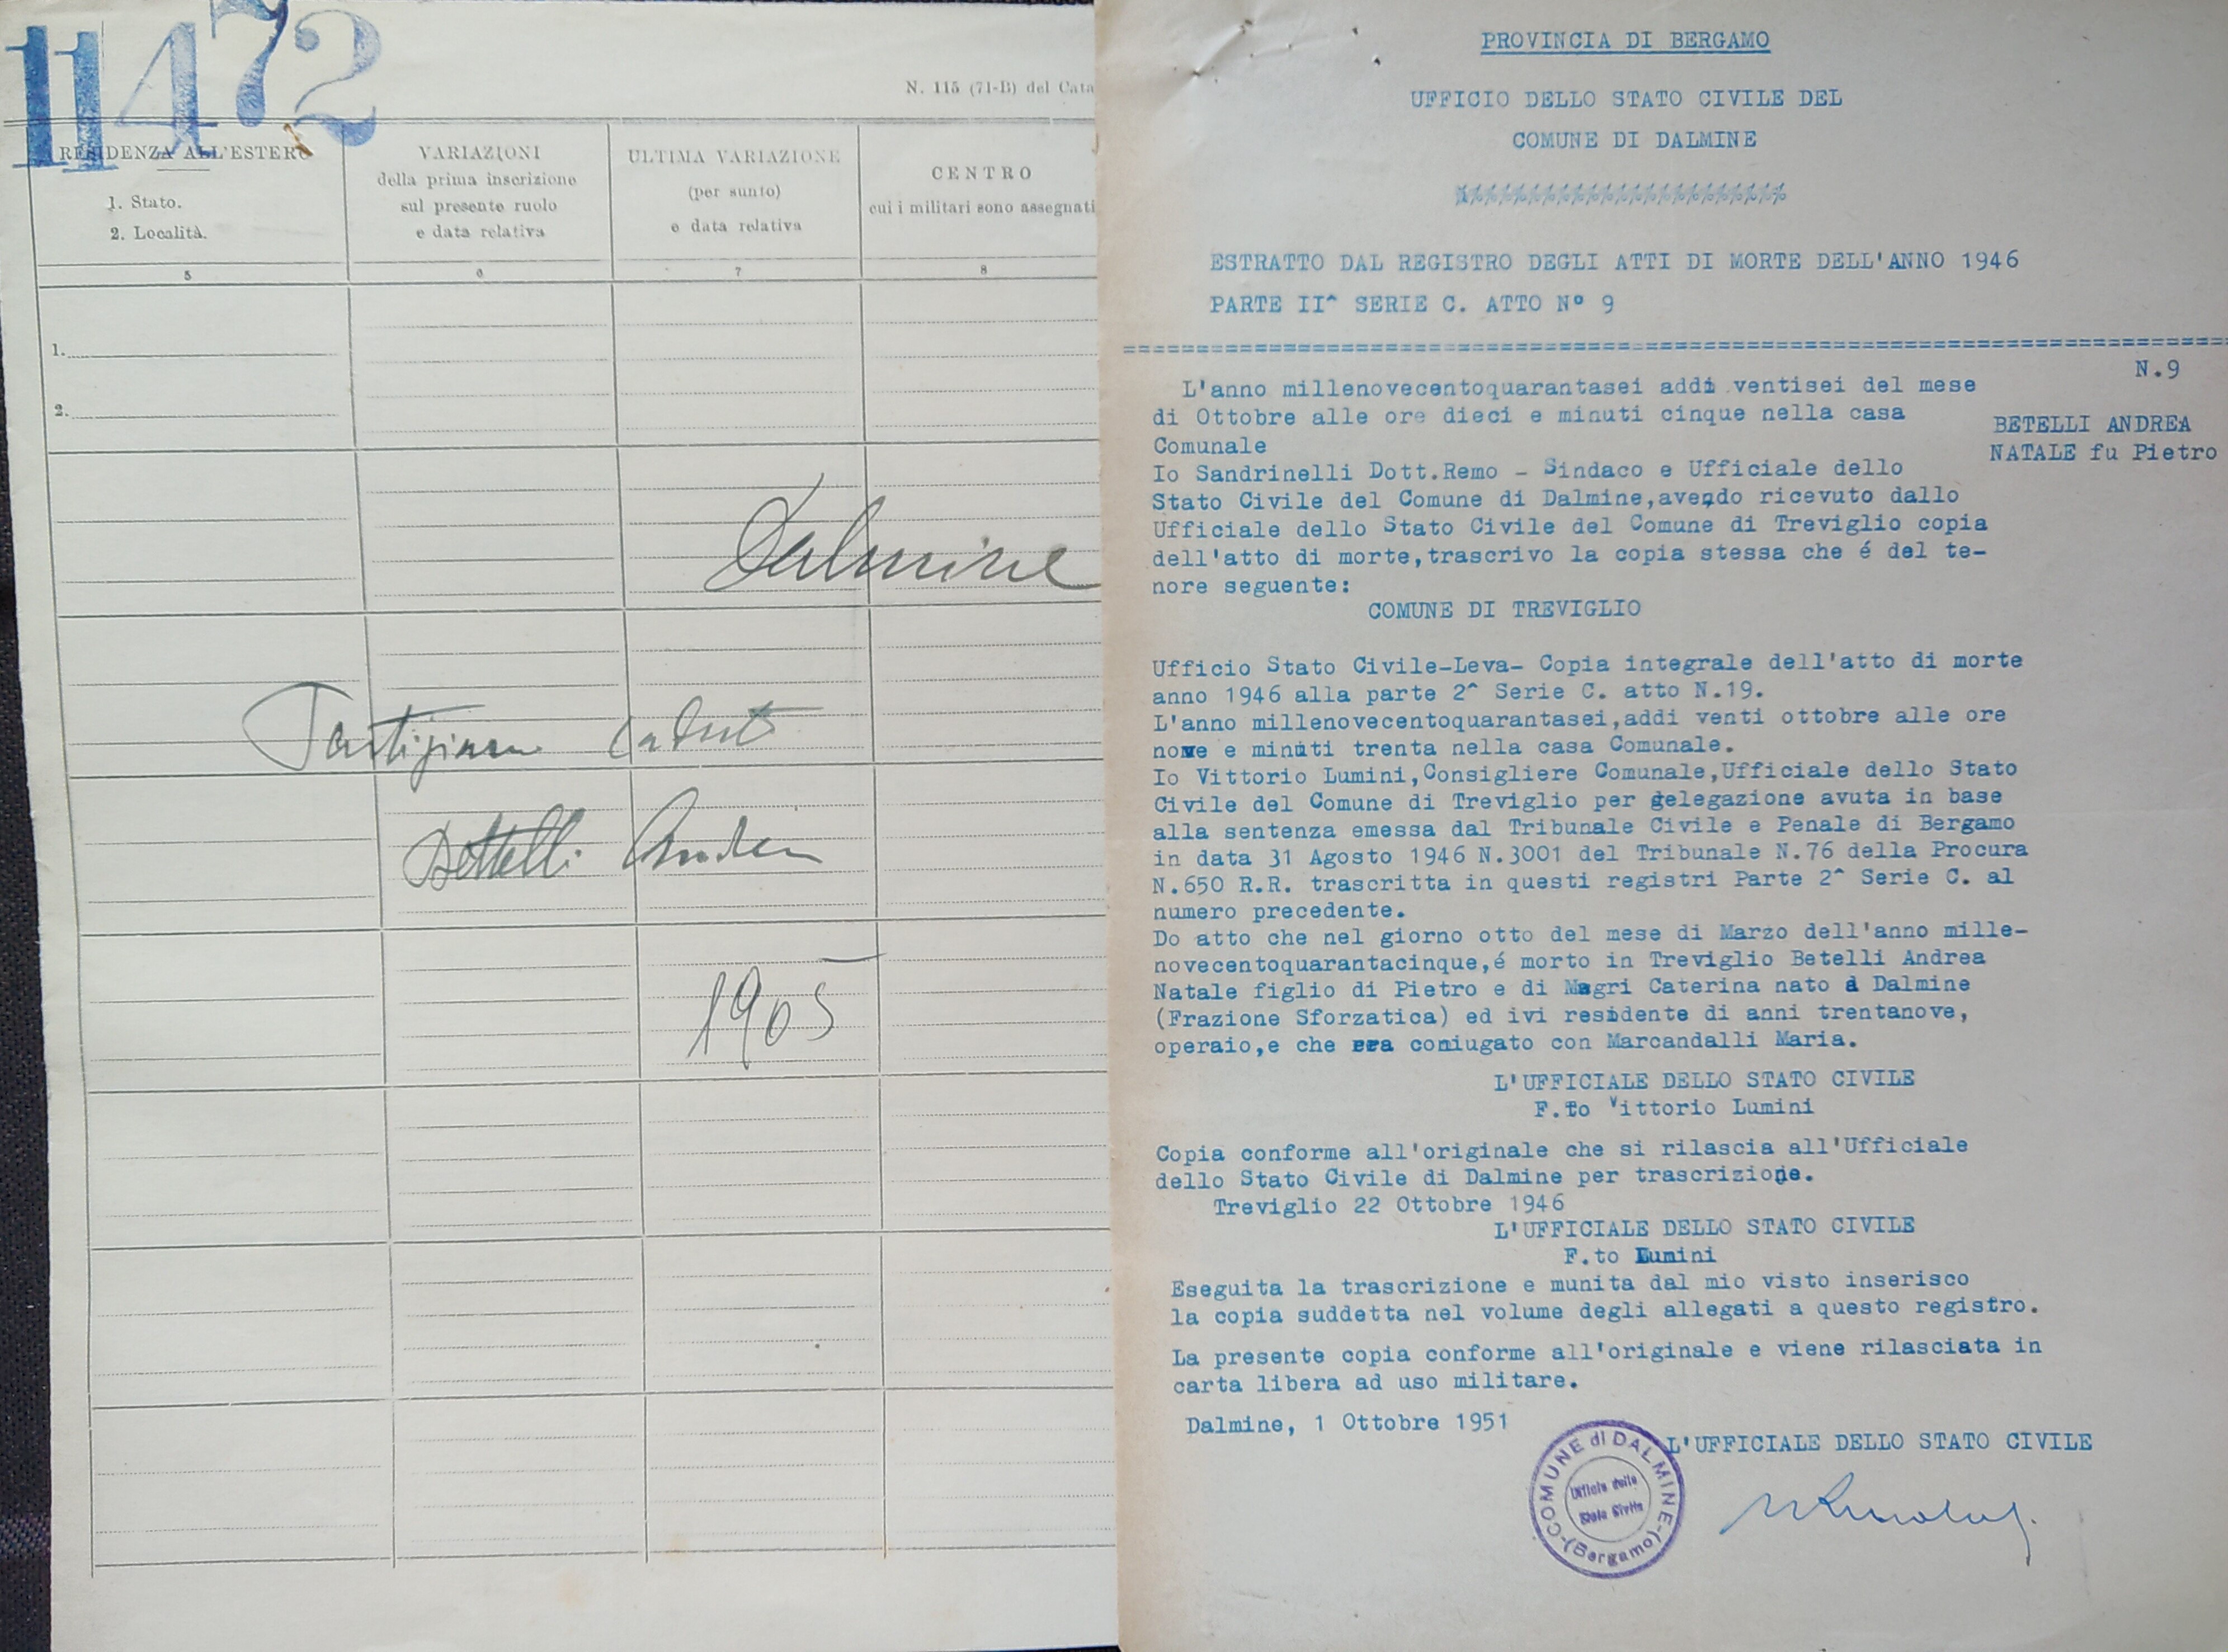 11472
N. 115 (71-B) del Cata
RESIDENZA ALL'ESTERO
1. Stato.
2. Località.
VARIAZIONI
della prima inscrizione
sul presente ruolo
e data relativa
ULTIMA VARIAZIONE
(per sunto)
e data relativa
CENTRO
cui i militari sono assegnati
5
6
7
8
1.
2.
Dalmine
Partigiano caduto
Bettelli Andrea
1905
PROVINCIA DI BERGAMO
UFFICIO DELLO STATO CIVILE DEL
COMUNE DI DALMINE
ESTRATTO DAL REGISTRO DEGLI ATTI DI MORTE DELL'ANNO 1946
PARTE II^ SERIE C. ATTO Nº 9
N.9
BETELLI ANDREA
NATALE fu Pietro
L'anno millenovecentoquarantasei addi ventisei del mese
di Ottobre alle ore dieci e minuti cinque nella casa
Comunale
Io Sandrinelli Dott.Remo - Sindaco e Ufficiale dello
Stato Civile del Comune di Dalmine,avendo ricevuto dallo
Ufficiale dello Stato Civile del Comune di Treviglio copia
dell'atto di morte,trascrivo la copia stessa che é del te-
nore seguente:
COMUNE DI TREVIGLIO
Ufficio Stato Civile-Leva- Copia integrale dell'atto di morte
anno 1946 alla parte 2^ Serie C. atto N.19.
L'anno millenovecentoquarantasei,addi venti ottobre alle ore
nove e minuti trenta nella casa Comunale.
Io Vittorio Lumini,Consigliere Comunale,Ufficiale dello Stato
Civile del Comune di Treviglio per delegazione avuta in base
alla sentenza emessa dal Tribunale Civile e Penale di Bergamo
in data 31 Agosto 1946 N.3001 del Tribunale N.76 della Procura
N.650 R.R. trascritta in questi registri Parte 2^ Serie C. al
numero precedente.
Do atto che nel giorno otto del mese di Marzo dell'anno mille-
novecentoquarantacinque,é morto in Treviglio Betelli Andrea
Natale figlio di Pietro e di Magri Caterina nato a Dalmine
(Frazione Sforzatica) ed ivi residente di anni trentanove,
operaio,e che era coniugato con Marcandalli Maria.
L'UFFICIALE DELLO STATO CIVILE
F.to Vittorio Lumini
Copia conforme all'originale che si rilascia all'Ufficiale
dello Stato Civile di Dalmine per trascrizione.
Treviglio 22 Ottobre 1946
L'UFFICIALE DELLO STATO CIVILE
F.to Lumini
Eseguita la trascrizione e munita dal mio visto inserisco
la copia suddetta nel volume degli allegati a questo registro.
La presente copia conforme all'originale e viene rilasciata in
carta libera ad uso militare.
Dalmine, 1 Ottobre 1951
L'UFFICIALE DELLO STATO CIVILE
COMUNE di DALMINE
(Bergamo)
Ufficio dello
Stato Civile